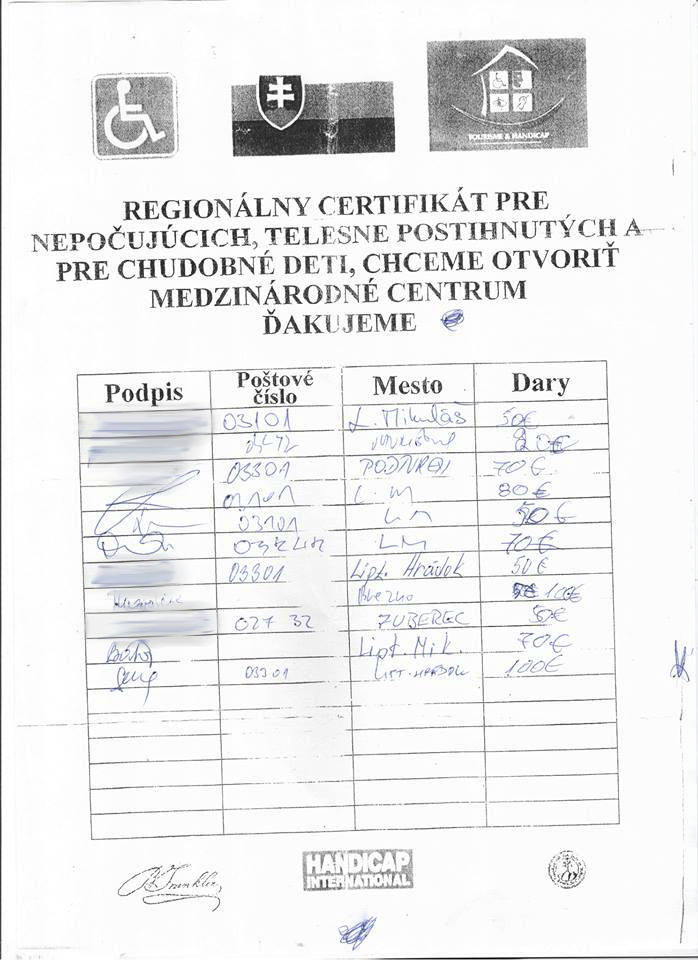 TOURISME & HANDICAP
REGIONÁLNY CERTIFIKÁT PRE
NEPOČUJÚCICH, TELESNE POSTIHNUTÝCH A
PRE CHUDOBNÉ DETI, CHCEME OTVORIŤ
MEDZINÁRODNÉ CENTRUM
ĎAKUJEME
Podpis Poštové číslo Mesto Dary
03101 L. Mikuláš 50€
20€
03301 PODTUREŇ 70€
03101 L.M 80€
03101 LM 50€
LM 70€
03301 Lipt. Hrádok 50€
100€
027 32 ZUBEREC 50€
Lipt. Mik. 70€
03301 LIPT. HRÁDOK 100€
HANDICAP
INTERNATIONAL